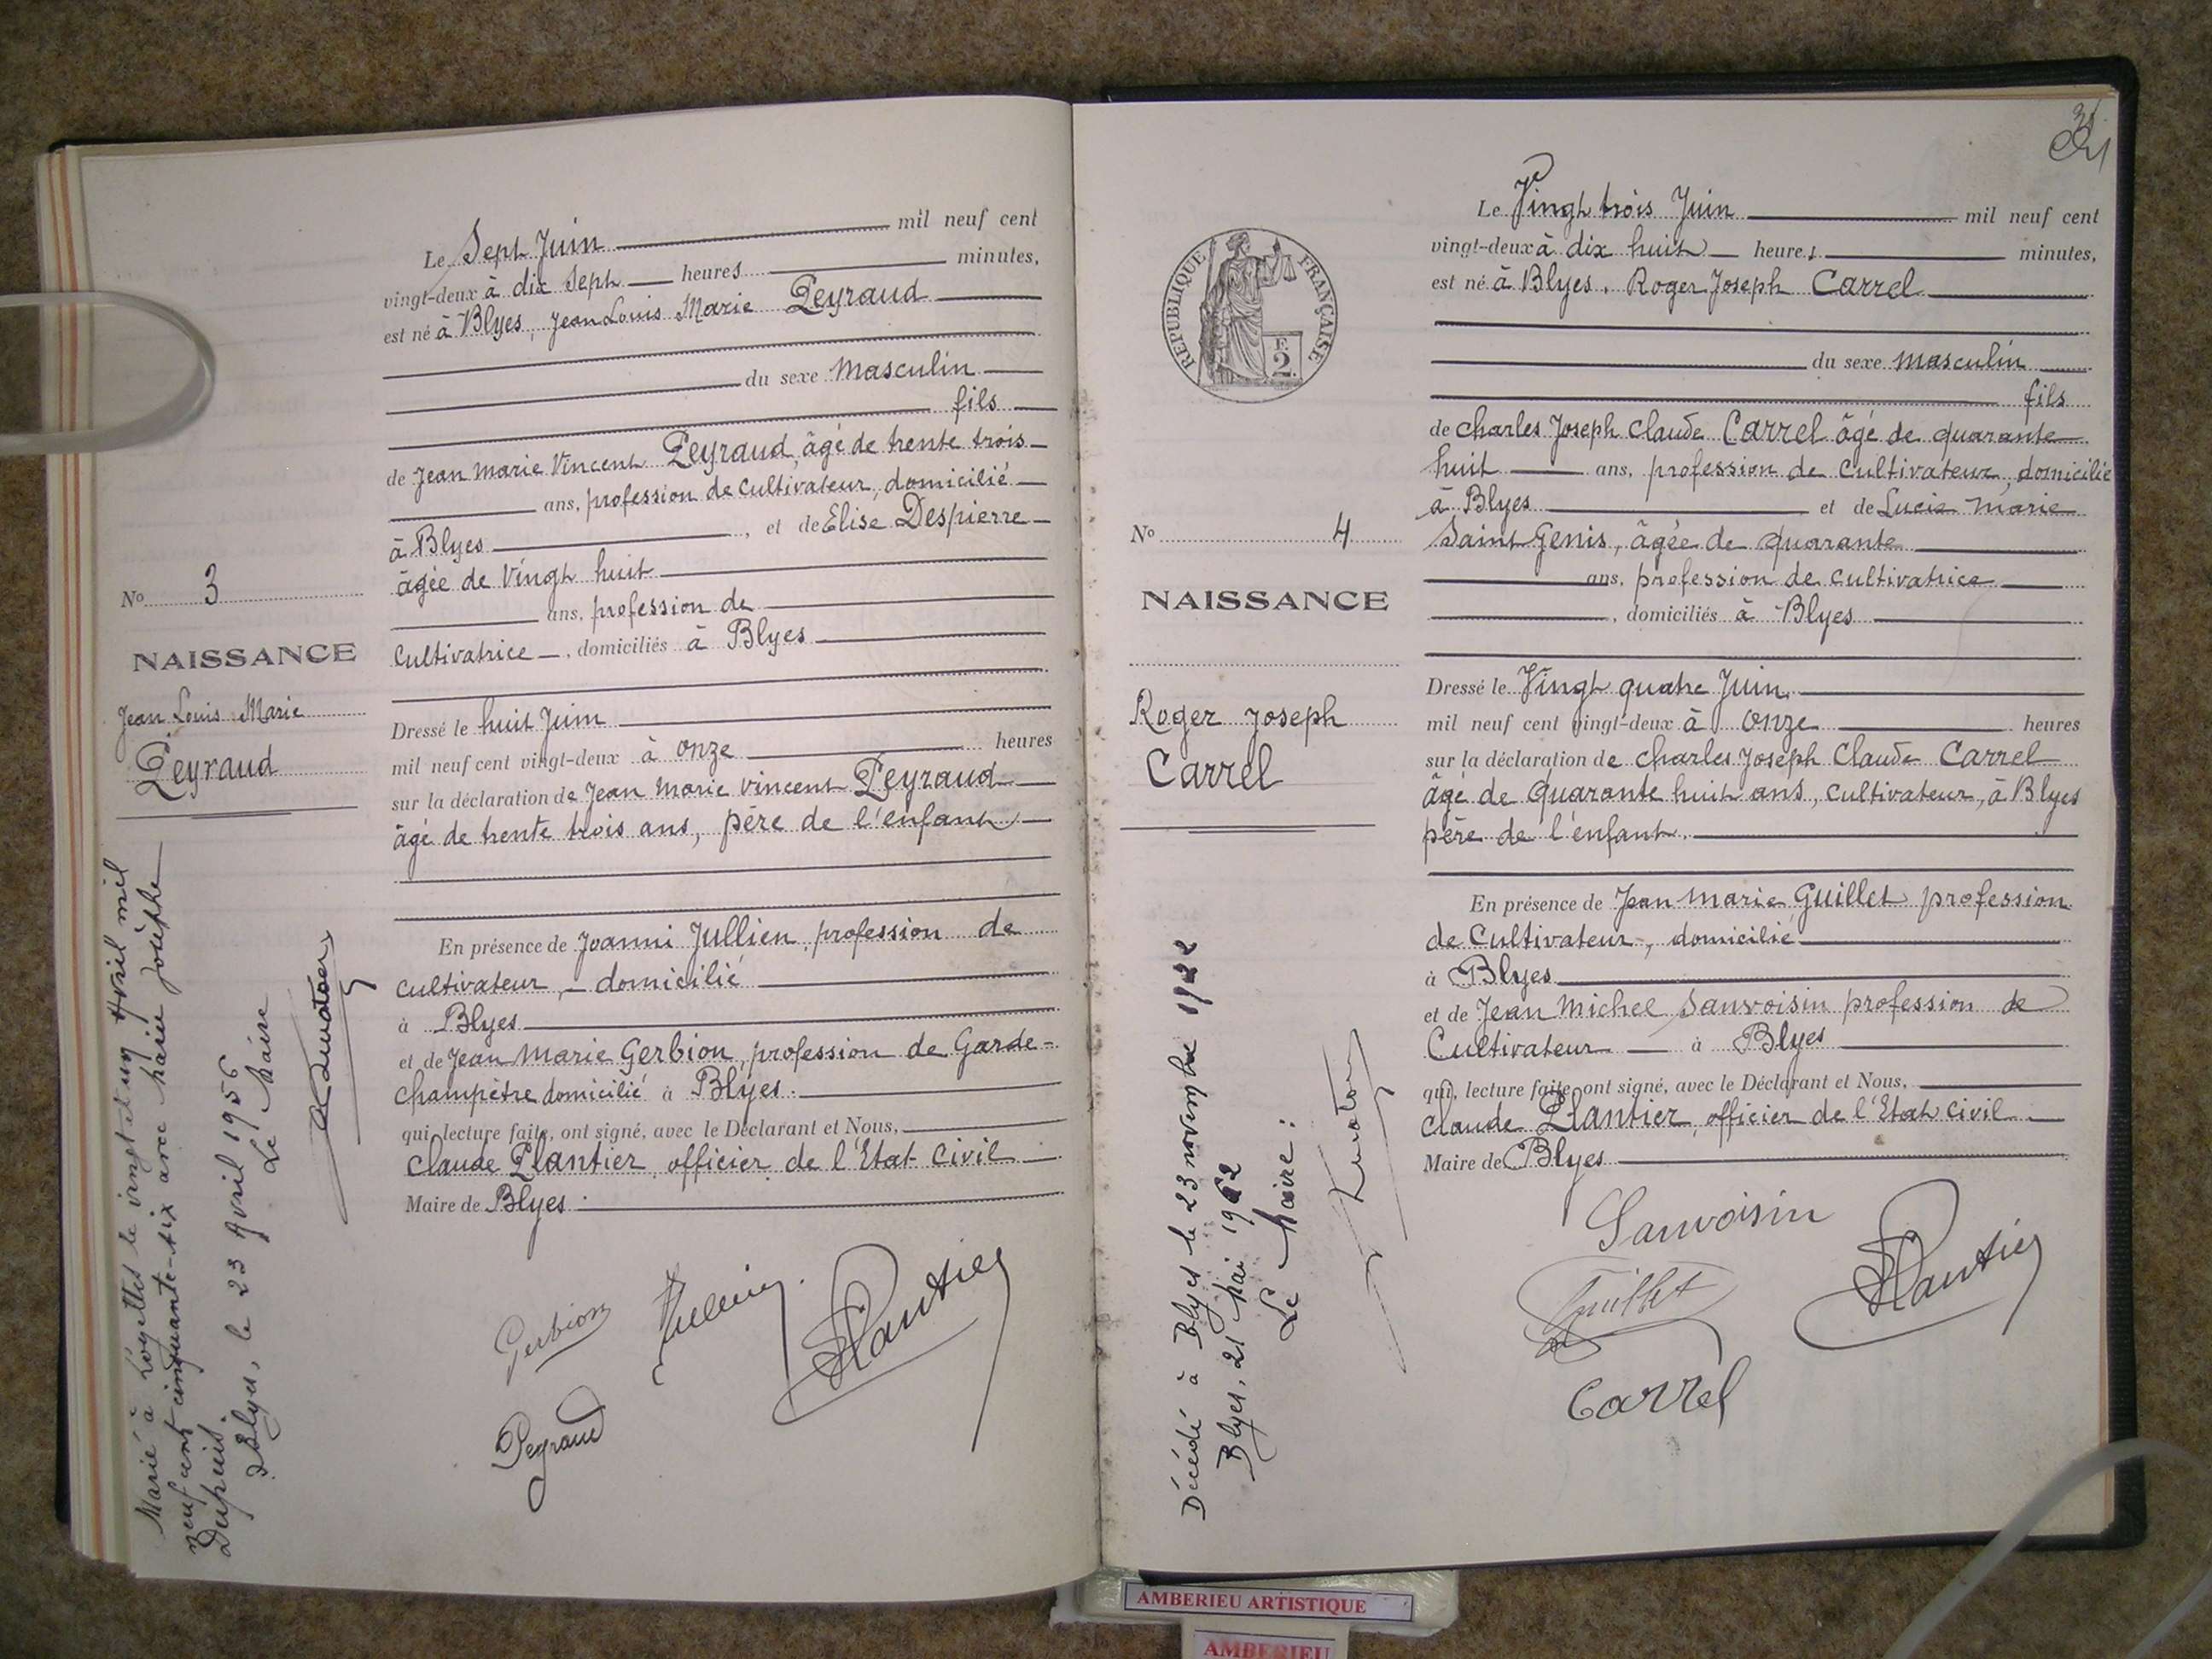 Le Sept Juin mil neuf cent
vingt-deux à dix sept heures minutes,
est né à Blyes, Jean Louis Marie Peyraud
du sexe masculin
fils
de Jean Marie Vincent Peyraud, âgé de trente trois
ans, profession de cultivateur, domicilié
à Blyes, et de Elise Despierre
âgée de vingt huit
ans, profession de
cultivatrice, domiciliés à Blyes
Dressé le huit Juin
mil neuf cent vingt-deux à onze heures
sur la déclaration de Jean Marie Vincent Peyraud
âgé de trente trois ans, père de l'enfant
En présence de Joanni Jullien, profession de
cultivateur, domicilié
à Blyes
et de Jean Marie Gerbion, profession de Garde-
champêtre domicilié à Blyes.
qui, lecture faite, ont signé, avec le Déclarant et Nous,
Claude Plantier, officier de l'Etat Civil
Maire de Blyes.
Gerbion
Jullien
Plantier
Peyraud
No 3
NAISSANCE
Jean Louis Marie
Peyraud
Marié à Loyettes le vingt et un Avril mil
neuf cent cinquante-six avec Marie Josèphe
Dupuis.
Blyes, le 23 Avril 1956
Le Maire
31
Le Vingt trois Juin mil neuf cent
vingt-deux à dix huit heures minutes,
est né à Blyes, Roger Joseph Carrel
du sexe masculin
fils
de Charles Joseph Claude Carrel âgé de quarante
huit ans, profession de cultivateur, domicilié
à Blyes et de Lucie Marie
Saint Genis, âgée de quarante
ans, profession de cultivatrice
, domiciliés à Blyes
Dressé le Vingt quatre Juin
mil neuf cent vingt-deux à onze heures
sur la déclaration de Charles Joseph Claude Carrel
âgé de quarante huit ans, cultivateur, à Blyes
père de l'enfant.
En présence de Jean Marie Guillet profession
de Cultivateur, domicilié
à Blyes
et de Jean Michel Sanvoisin profession de
Cultivateur à Blyes
qui, lecture faite, ont signé, avec le Déclarant et Nous,
Claude Plantier, officier de l'Etat Civil
Maire de Blyes
Sanvoisin
Guillet
Plantier
Carrel
RÉPUBLIQUE FRANÇAISE
F.
2.
No 4
NAISSANCE
Roger Joseph
Carrel
Décédé à Blyes le 23 novembre 1922
Blyes, 21 Mai 1962
Le Maire :
AMBERIEU ARTISTIQUE
AMBERIEU